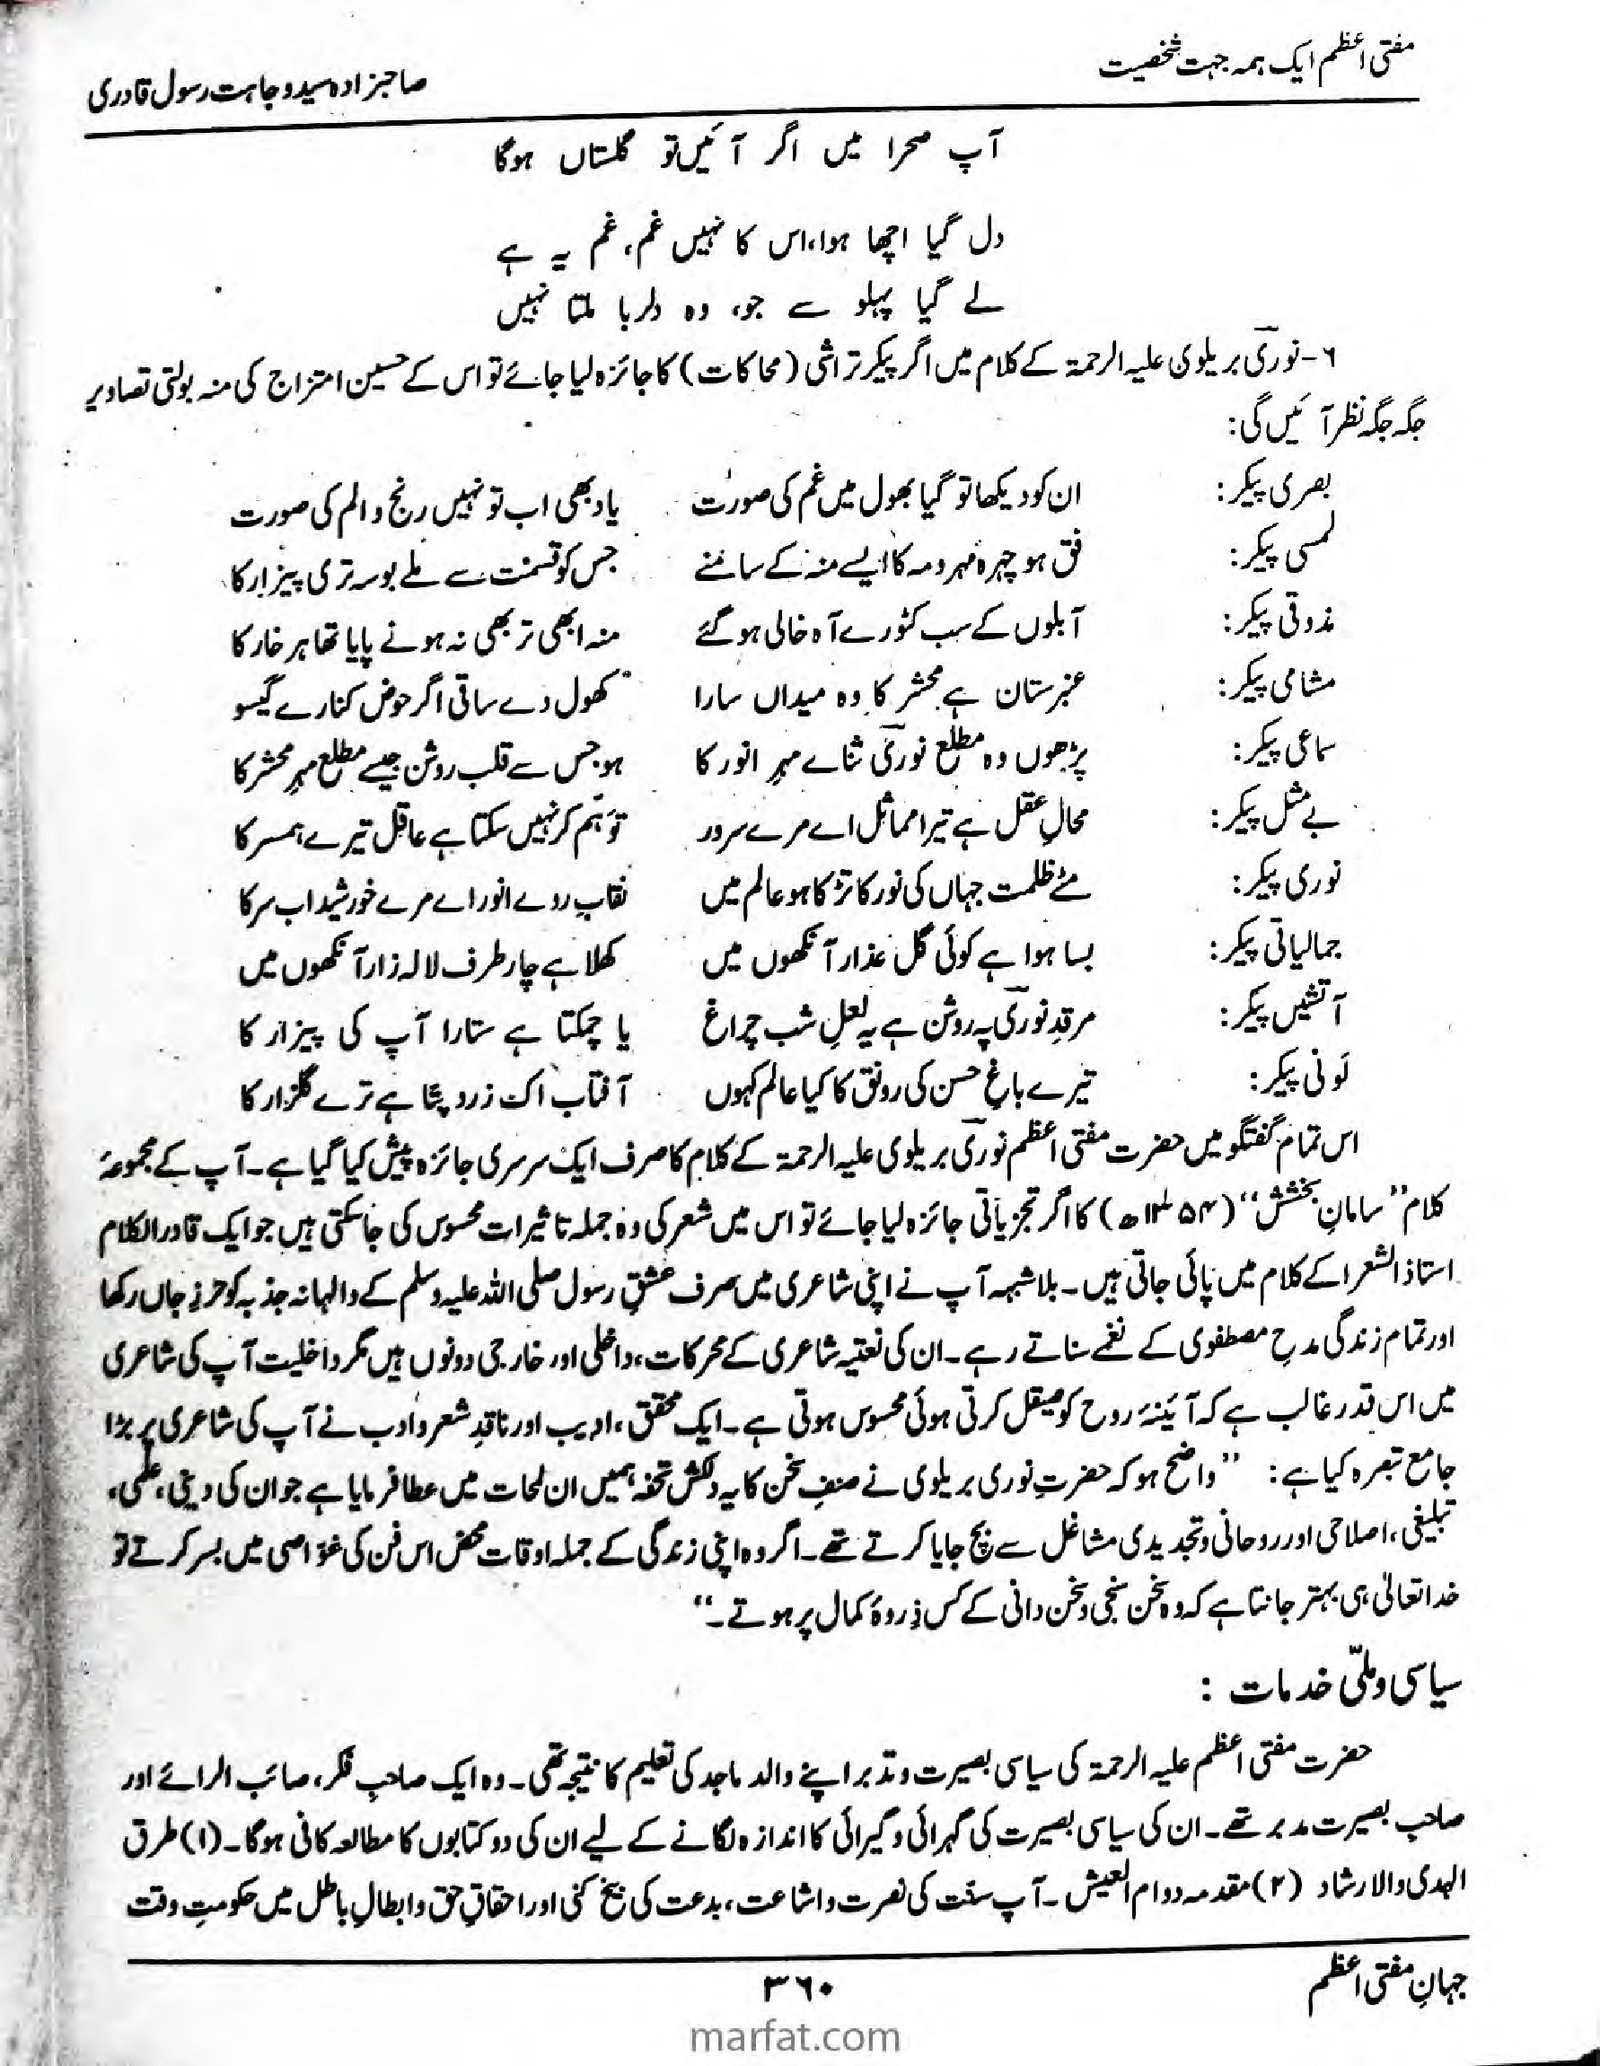 مفتی اعظم ایک ہمہ جہت شخصیت
صاحبزادہ سید وجاہت رسول قادری
آپ صحرا میں اگر آئیں تو گلستاں ہوگا
دل گیا اچھا ہوا، اس کا نہیں غم، غم یہ ہے
لے گیا پہلو سے جو، وہ دلربا ملتا نہیں
۶- نوریؔ بریلوی علیہ الرحمۃ کے کلام میں اگر پیکر تراشی (محاکات) کا جائزہ لیا جائے تو اس کے حسین امتزاج کی منہ بولتی تصاویر
جگہ جگہ نظر آئیں گی:
بصری پیکر: ان کو دیکھا تو گیا بھول میں غم کی صورت یاد بھی اب تو نہیں رنج و الم کی صورت
لمسی پیکر: فق ہو چہرہ مہر و مہ کا ایسے منہ کے سامنے جس کو قسمت سے ملے بوسہ تری پیزار کا
مذوقی پیکر: آبلوں کے سب کٹورے آہ خالی ہوگئے منہ ابھی تر بھی نہ ہونے پایا تھا ہر خار کا
مشامی پیکر: عنبرستان ہے محشر کا وہ میداں سارا کھول دے ساقی اگر حوض کنارے گیسو
سماعی پیکر: پڑھوں وہ مطلع نوریؔ ثنائے مہرِ انور کا ہو جس سے قلب روشن جیسے مطلع مہرِ محشر کا
بے مثل پیکر: محالِ عقل ہے تیرا مماثل اے مرے سرور توہّم کر نہیں سکتا ہے عاقل تیرے ہمسر کا
نوری پیکر: مٹے ظلمت جہاں کی نور کا تڑکا ہو عالم میں نقابِ روے انور اے مرے خورشید اب سرکا
جمالیاتی پیکر: بسا ہوا ہے کوئی گل عذار آنکھوں میں کھلا ہے چار طرف لالہ زار آنکھوں میں
آتشیں پیکر: مرقدِ نوریؔ پہ روشن ہے یہ لعلِ شب چراغ یا چمکتا ہے ستارا آپ کی پیزار کا
لَونی پیکر: تیرے باغِ حسن کی رونق کا کیا عالم کہوں آفتاب اک زرد پتا ہے ترے گلزار کا
اس تمام گفتگو میں حضرت مفتی اعظم نوریؔ بریلوی علیہ الرحمۃ کے کلام کا صرف ایک سرسری جائزہ پیش کیا گیا ہے۔ آپ کے مجموعۂ
کلام ”سامانِ بخشش“ (۱۳۵۴ھ) کا اگر تجزیاتی جائزہ لیا جائے تو اس میں شعر کی وہ جملہ تاثیرات محسوس کی جاسکتی ہیں جو ایک قادر الکلام
استاذ الشعرا کے کلام میں پائی جاتی ہیں۔ بلاشبہہ آپ نے اپنی شاعری میں صرف عشقِ رسول صلی اللہ علیہ وسلم کے والہانہ جذبہ کو حرزِ جاں رکھا
اور تمام زندگی مدحِ مصطفوی کے نغمے سناتے رہے۔ ان کی نعتیہ شاعری کے محرکات، داخلی اور خارجی دونوں ہیں مگر داخلیت آپ کی شاعری
میں اس قدر غالب ہے کہ آئینۂ روح کو صیقل کرتی ہوئی محسوس ہوتی ہے۔ ایک محقق، ادیب اور ناقدِ شعر و ادب نے آپ کی شاعری پر بڑا
جامع تبصرہ کیا ہے: ”واضح ہو کہ حضرتِ نوری بریلوی نے صنفِ سخن کا یہ دلکش تحفہ ہمیں ان لمحات میں عطا فرمایا ہے جو ان کی دینی، علمی،
تبلیغی، اصلاحی اور روحانی و تجدیدی مشاغل سے بچ جایا کرتے تھے۔ اگر وہ اپنی زندگی کے جملہ اوقات محض اس فن کی غوّاصی میں بسر کرتے تو
خدا تعالیٰ ہی بہتر جانتا ہے کہ وہ سخن سنجی و سخن دانی کے کس ذِروۂ کمال پر ہوتے۔“
سیاسی و ملّی خدمات :
حضرت مفتی اعظم علیہ الرحمۃ کی سیاسی بصیرت و تدبر اپنے والد ماجد کی تعلیم کا نتیجہ تھی۔ وہ ایک صاحبِ فکر، صائب الرائے اور
صاحبِ بصیرت مدبر تھے۔ ان کی سیاسی بصیرت کی گہرائی و گیرائی کا اندازہ لگانے کے لیے ان کی دو کتابوں کا مطالعہ کافی ہوگا۔ (۱) طرق
الہدی والارشاد (۲) مقدمہ دوام العیش۔ آپ سنّت کی نصرت و اشاعت، بدعت کی بیخ کنی اور احقاقِ حق و ابطالِ باطل میں حکومتِ وقت
جہانِ مفتی اعظم
۳۶۰
marfat.com